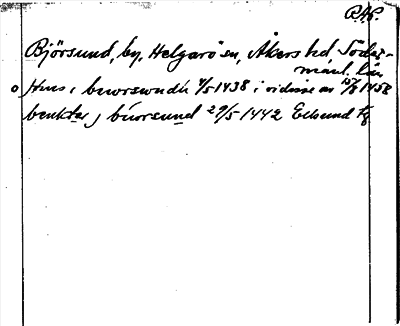 RAP.
Björsund, by, Helgarö sn, Åkers hd Söder-
manl. län
Hus i buorswndh 4/5 1438 i vidisse av 15/8 1458
benkt i buorsund 29/5 1442 Edsund